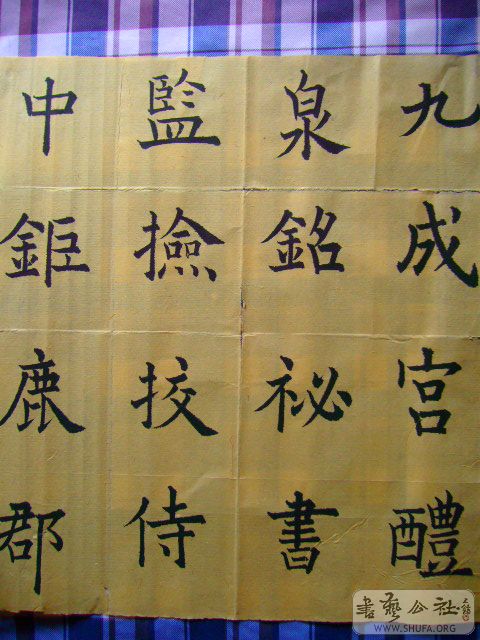 九成宮醴
泉銘祕書
監撿挍侍
中鉅鹿郡
書藝公社
WWW.SHUFA.ORG